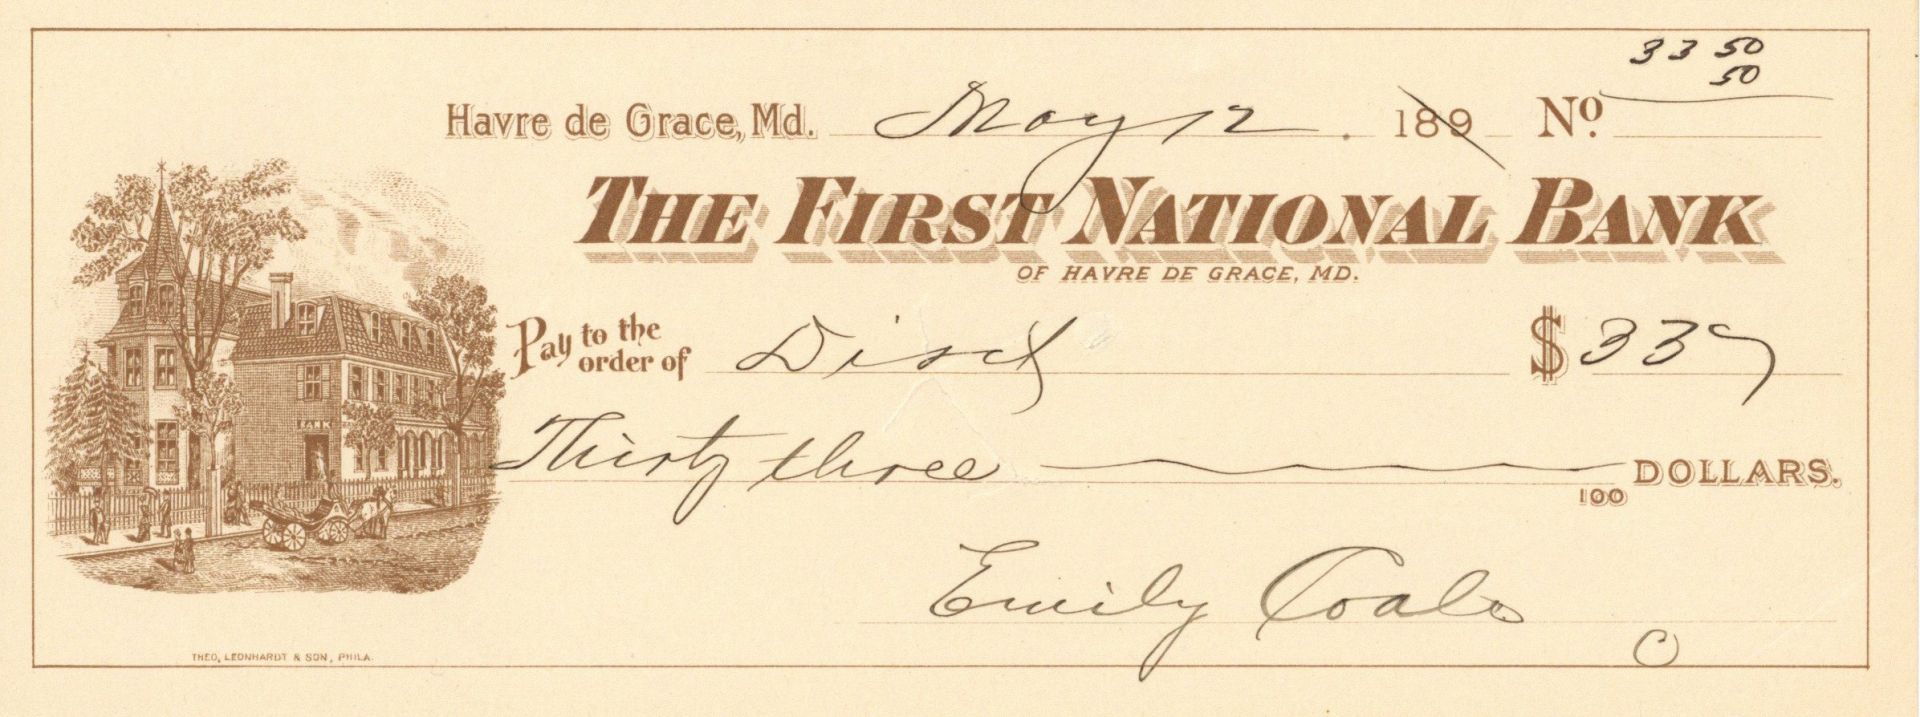 33 50
50
Havre de Grace, Md. May 12. 189 No.
THE FIRST NATIONAL BANK
OF HAVRE DE GRACE, MD.
Pay to the order of Disct $ 33
Thirty three 100 DOLLARS.
Emily Coale
BANK
THEO. LEONHARDT & SON, PHILA.